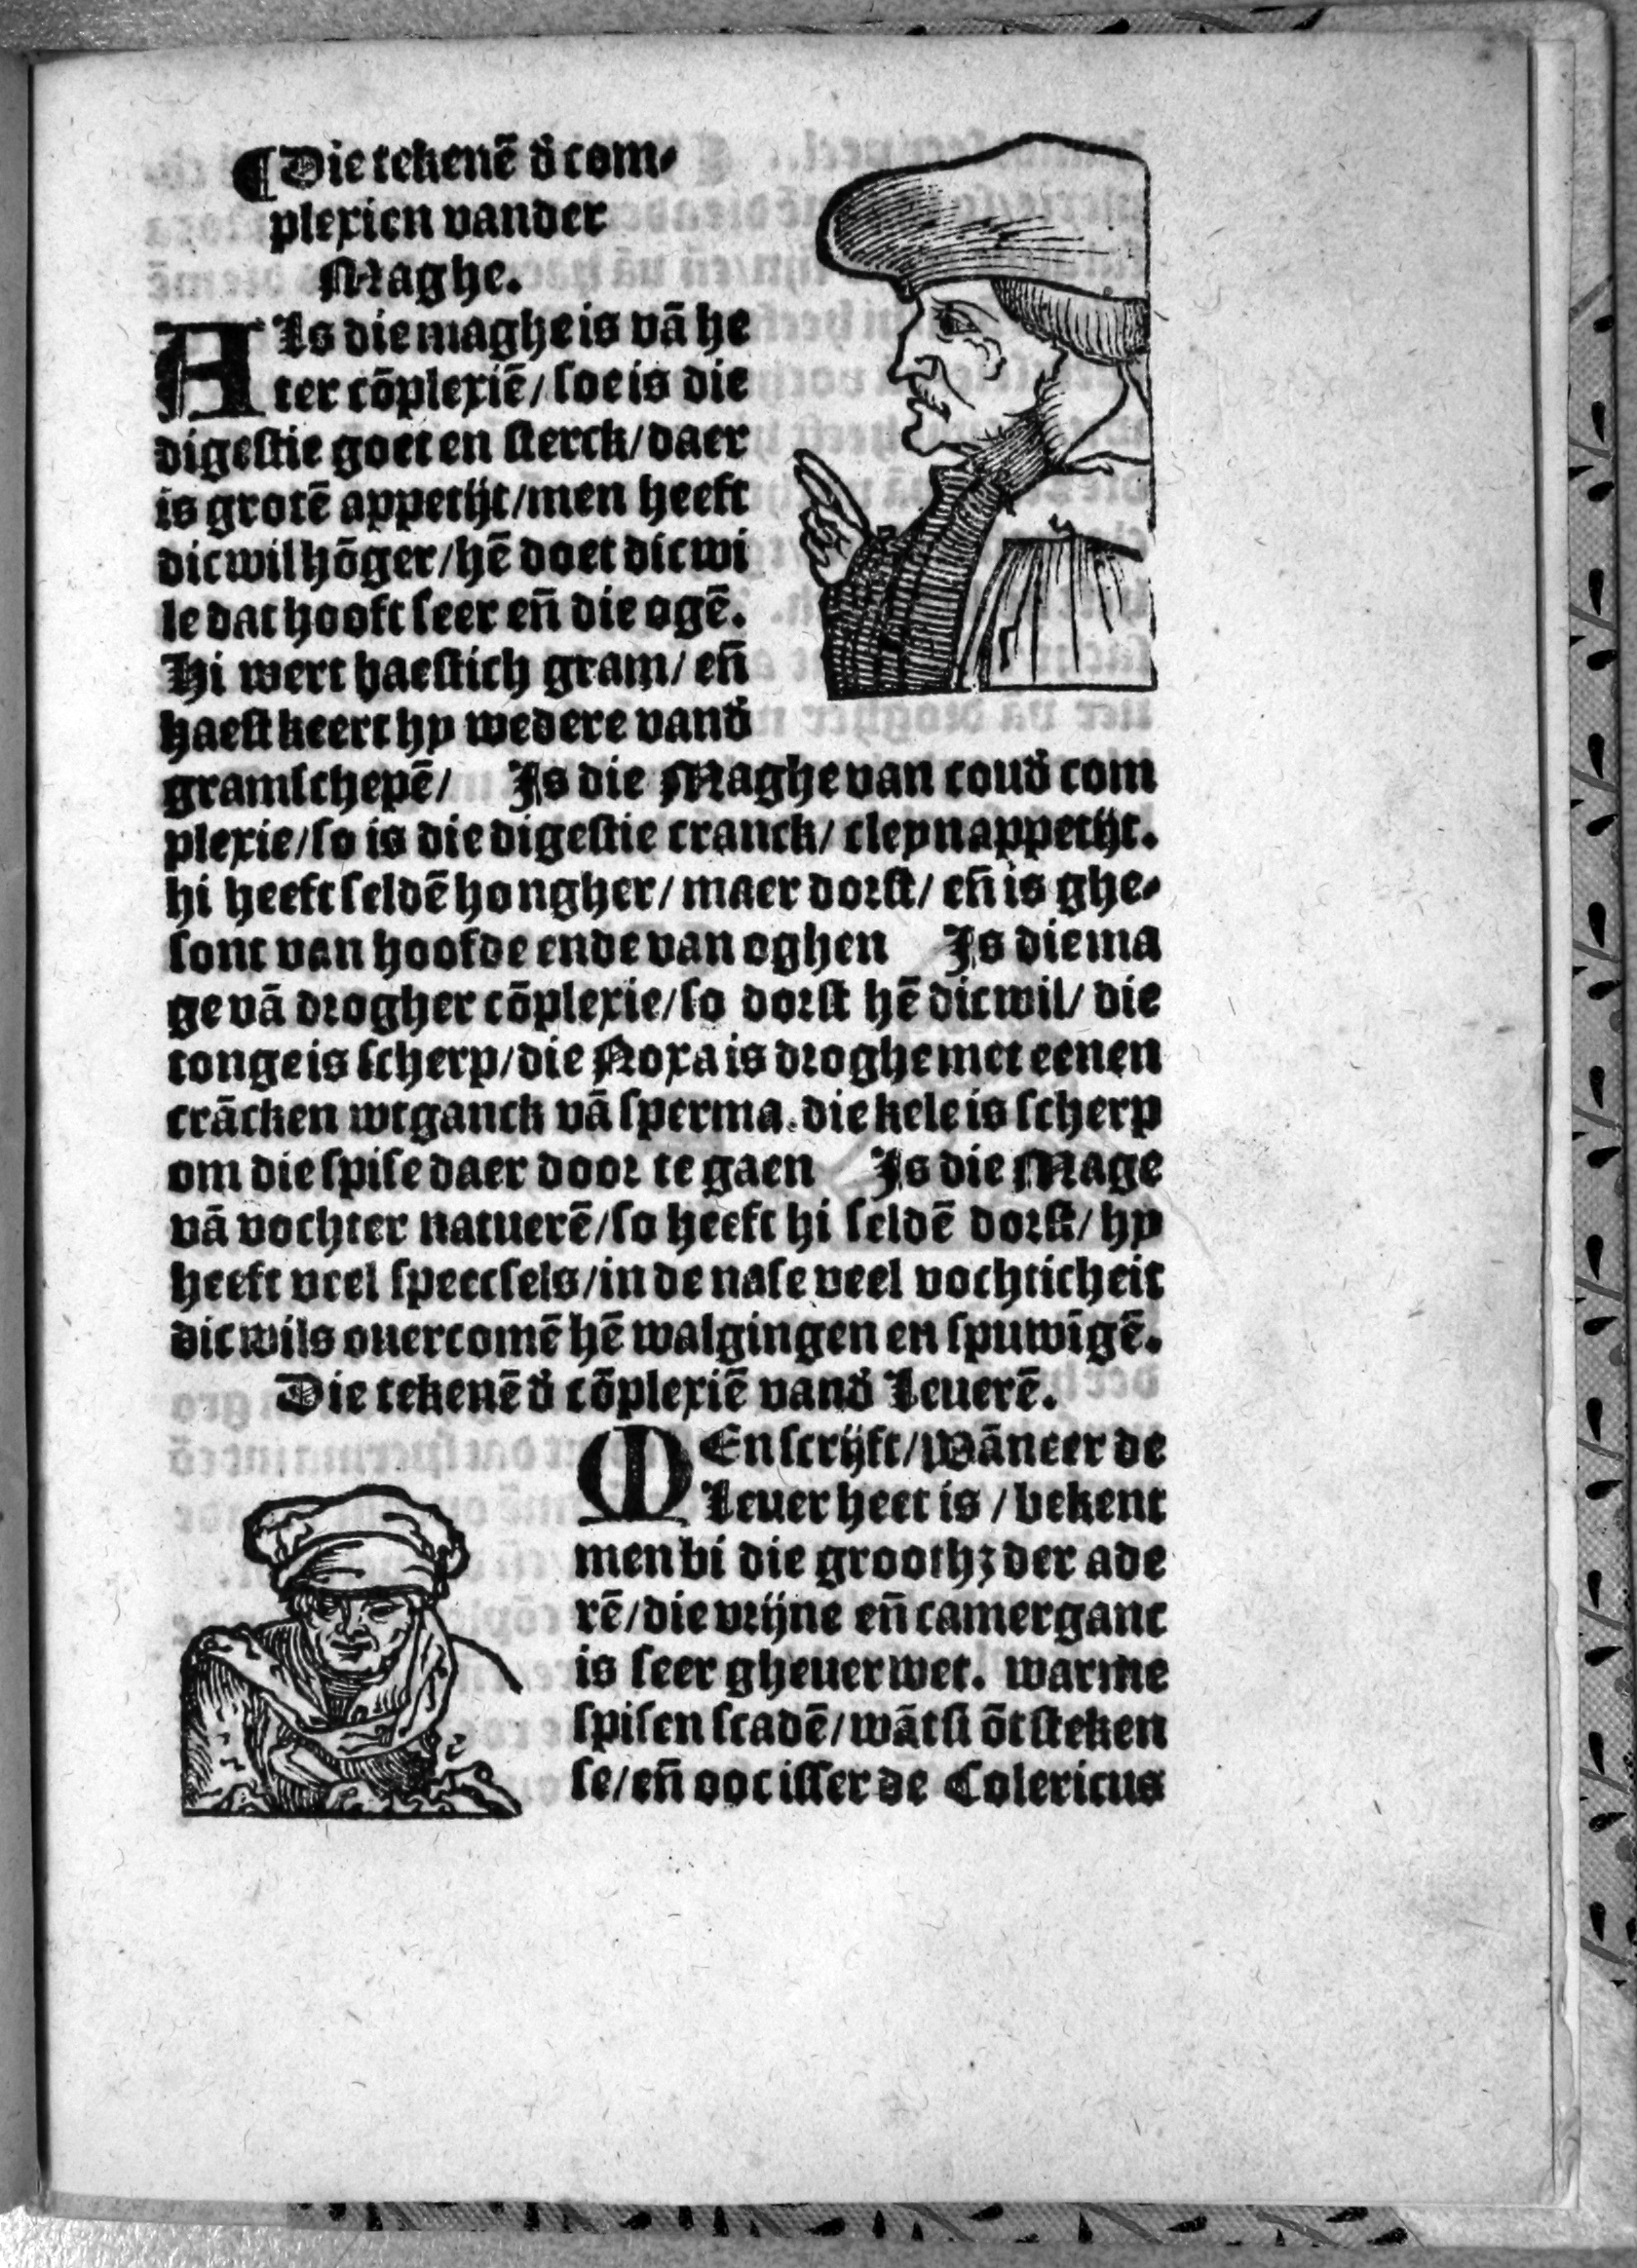 ¶Die tekenē đ com⸗
plexien vander
Maghe.
ALs die maghe is vā he
ter cōplexiē/ soe is die
digestie goet en sterck/ daer
is grotē appetijt/ men heeft
dicwil hōger/ hē doet dicwi
le dat hooft seer eñ die ogē.
Hi wert haestich gram/ eñ
haest keert hy wedere vanđ
gramschepē/ Is die Maghe van couđ com
plexie/ so is die digestie cranck/ cleyn appetijt.
hi heeft seldē hongher/ maer dorst/ eñ is ghe⸗
sont van hoofde ende van oghen Is die ma
ge vā drogher cōplexie/ so dorst hē dicwil/ die
tonge is scherp/ die Noxa is droghe met eenen
crācken wtganck vā sperma. die kele is scherp
om die spise daer door te gaen Is die Mage
vā vochter natuerē/ so heeft hi seldē dorst/ hy
heeft veel speecsels/ in de nase veel vochticheit
dicwils ouercomē hē walgingen en spuwīgē.
Die tekenē đ cōplexiē vanđ Leuerē.
MEn scrijft/ Wāneer de
Leuer heet is / bekent
men bi die grooth; der ade
rē/ die vrijne eñ camerganc
is seer gheuerwet. warme
spisen scadē/ wāt si ōtsteken
se/ eñ ooc isser de Colericus